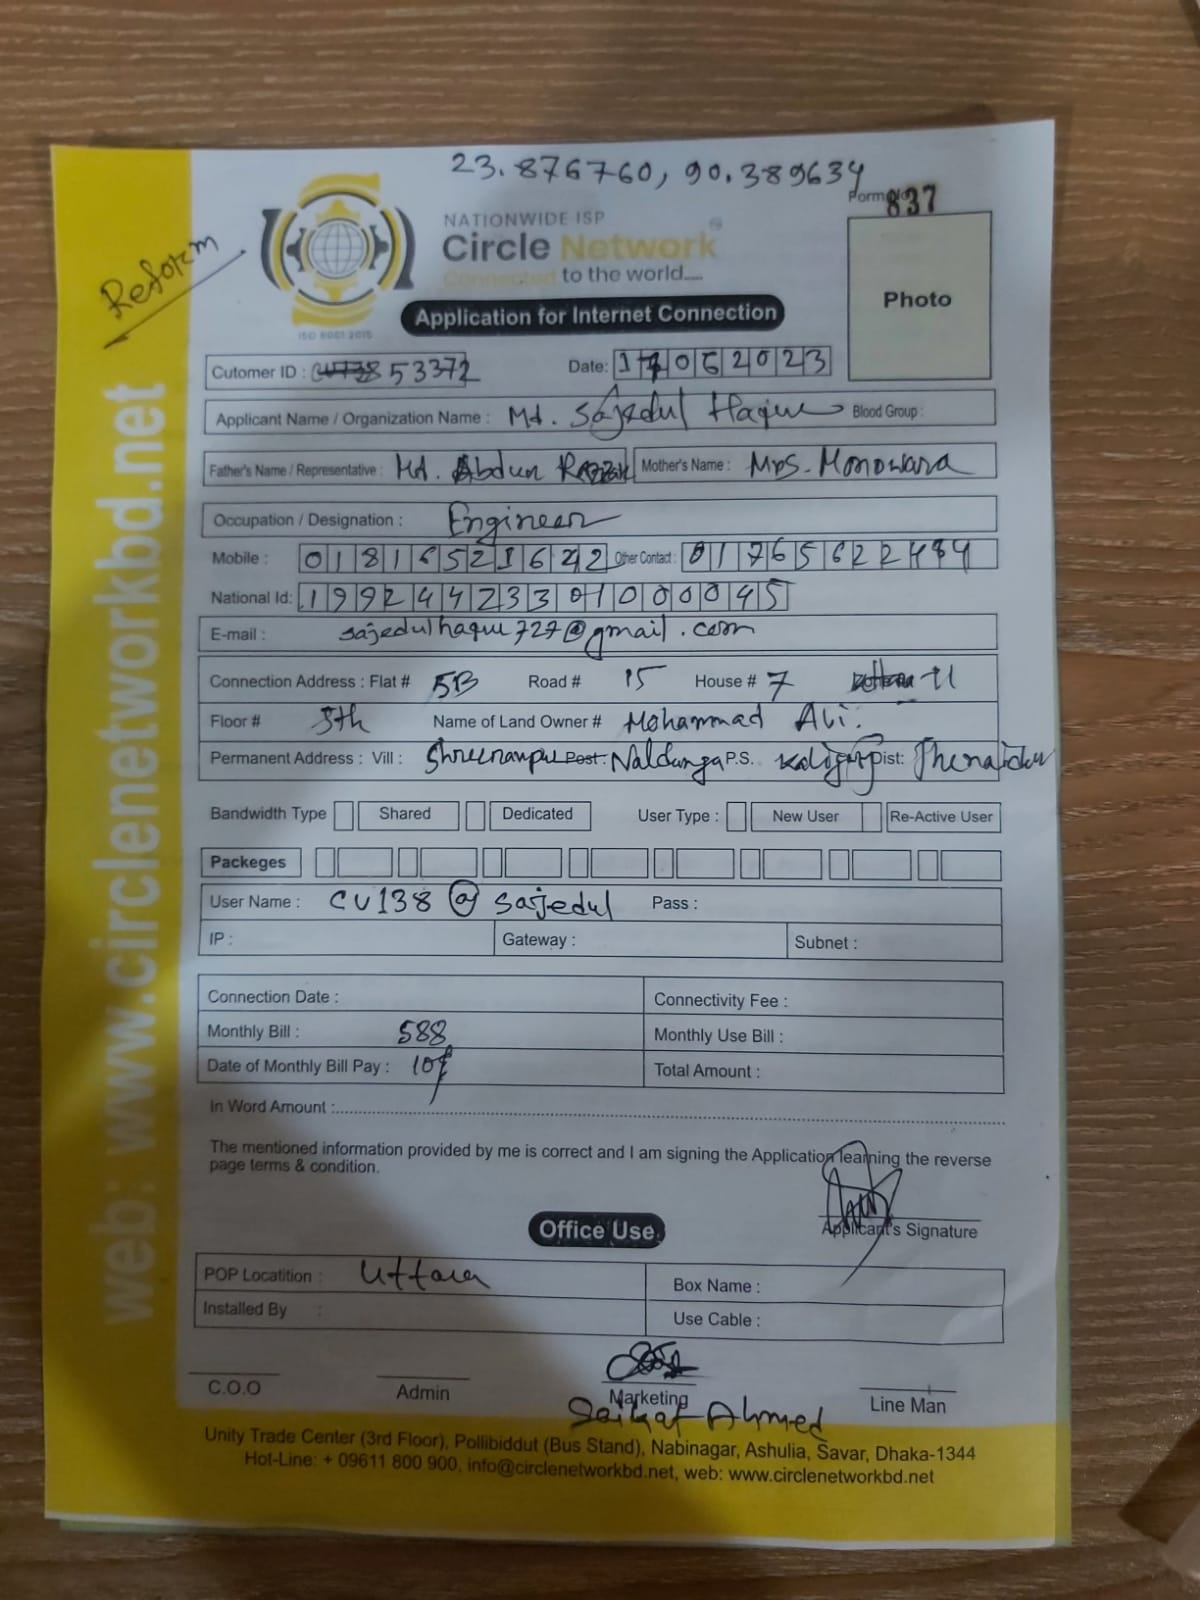 23.876760, 90.389634
Form No 837
Reform
NATIONWIDE ISP
Circle Network
Connected to the world....
ISO 9001:2015
Application for Internet Connection
Photo
Cutomer ID : 53372 Date: 17062023
Applicant Name / Organization Name : Md. Sajedul Haque Blood Group :
Father's Name / Representative : Md. Abdur Razzak Mother's Name : Mrs. Monowara
Occupation / Designation : Engineer
Mobile : 01816521642 Other Contact : 01765622484
National Id: 19924423301000045
E-mail : sajedulhaque727@gmail.com
Connection Address : Flat # 5B Road # 15 House # 7
Floor # 5th Name of Land Owner # Mohammad Ali.
Permanent Address : Vill : Post: Naldanga P.S. Dist:
Bandwidth Type Shared Dedicated User Type : New User Re-Active User
Packeges
User Name : CU138@sajedul Pass :
IP : Gateway : Subnet :
Connection Date : Connectivity Fee :
Monthly Bill : 588 Monthly Use Bill :
Date of Monthly Bill Pay : Total Amount :
In Word Amount :
The mentioned information provided by me is correct and I am signing the Application learning the reverse
page terms & condition.
Applicant's Signature
Office Use
POP Locatition : Uttara Box Name :
Installed By : Use Cable :
C.O.O Admin Marketing Line Man
Saikat Ahmed
Unity Trade Center (3rd Floor), Pollibiddut (Bus Stand), Nabinagar, Ashulia, Savar, Dhaka-1344
Hot-Line: + 09611 800 900, info@circlenetworkbd.net, web: www.circlenetworkbd.net
web: www.circlenetworkbd.net